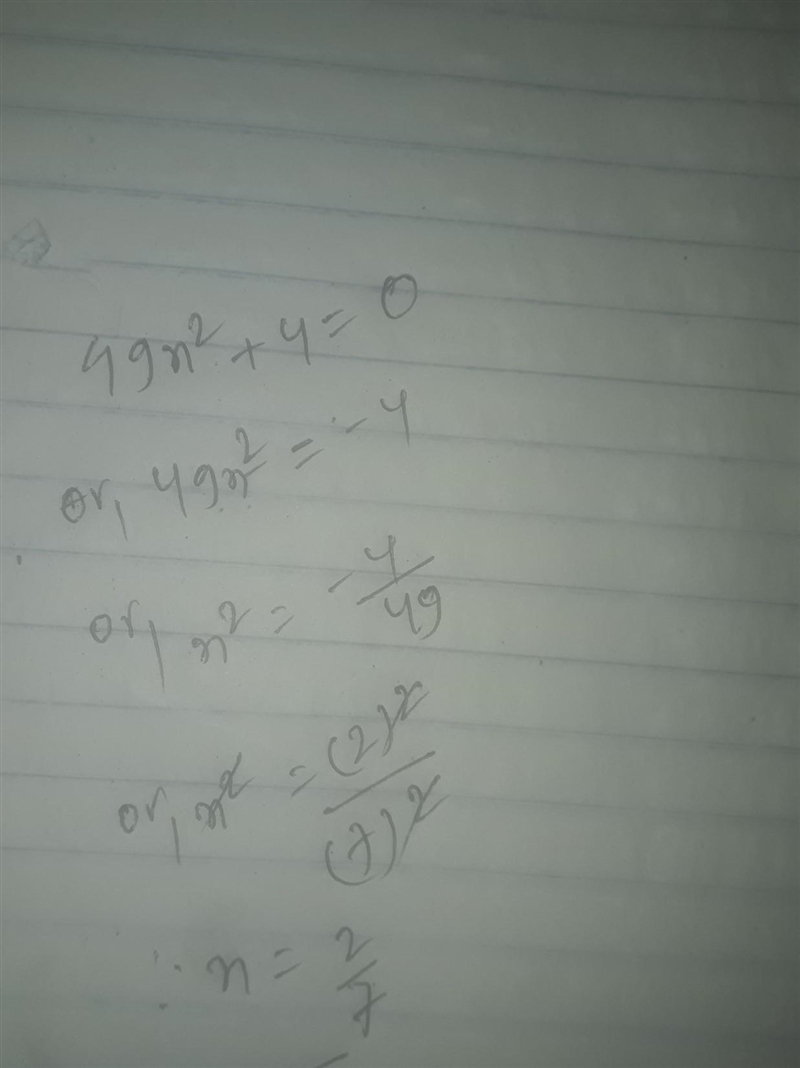 49x² + 4 = 0
or, 49x² = -4
or, x² = -4/49
or, x² = (2)²/(7)²
∴ x = 2/7